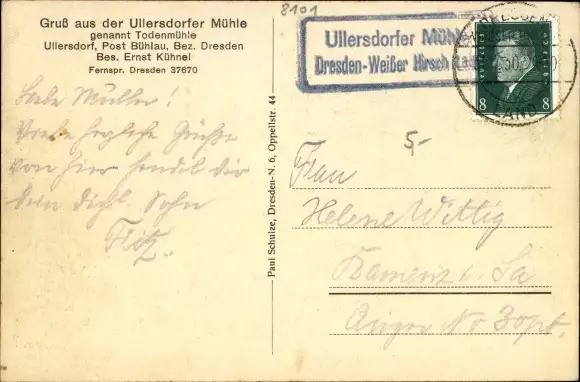 8101
Gruß aus der Ullersdorfer Mühle
genannt Todenmühle
Ullersdorf, Post Bühlau, Bez. Dresden
Bes. Ernst Kühnel
Fernspr. Dresden 37670
Ullersdorfer Mühle
Dresden-Weißer Hirsch Land
8 8
LAND
Liebe Mutter!
Viele herzliche Grüße
von hier sendet dir
dein dichl. Sohn
Fritz.
5,-
Frau
Helene Wittig
Kamenz i. Sa
Paul Schulze, Dresden-N. 6, Oppellstr. 44